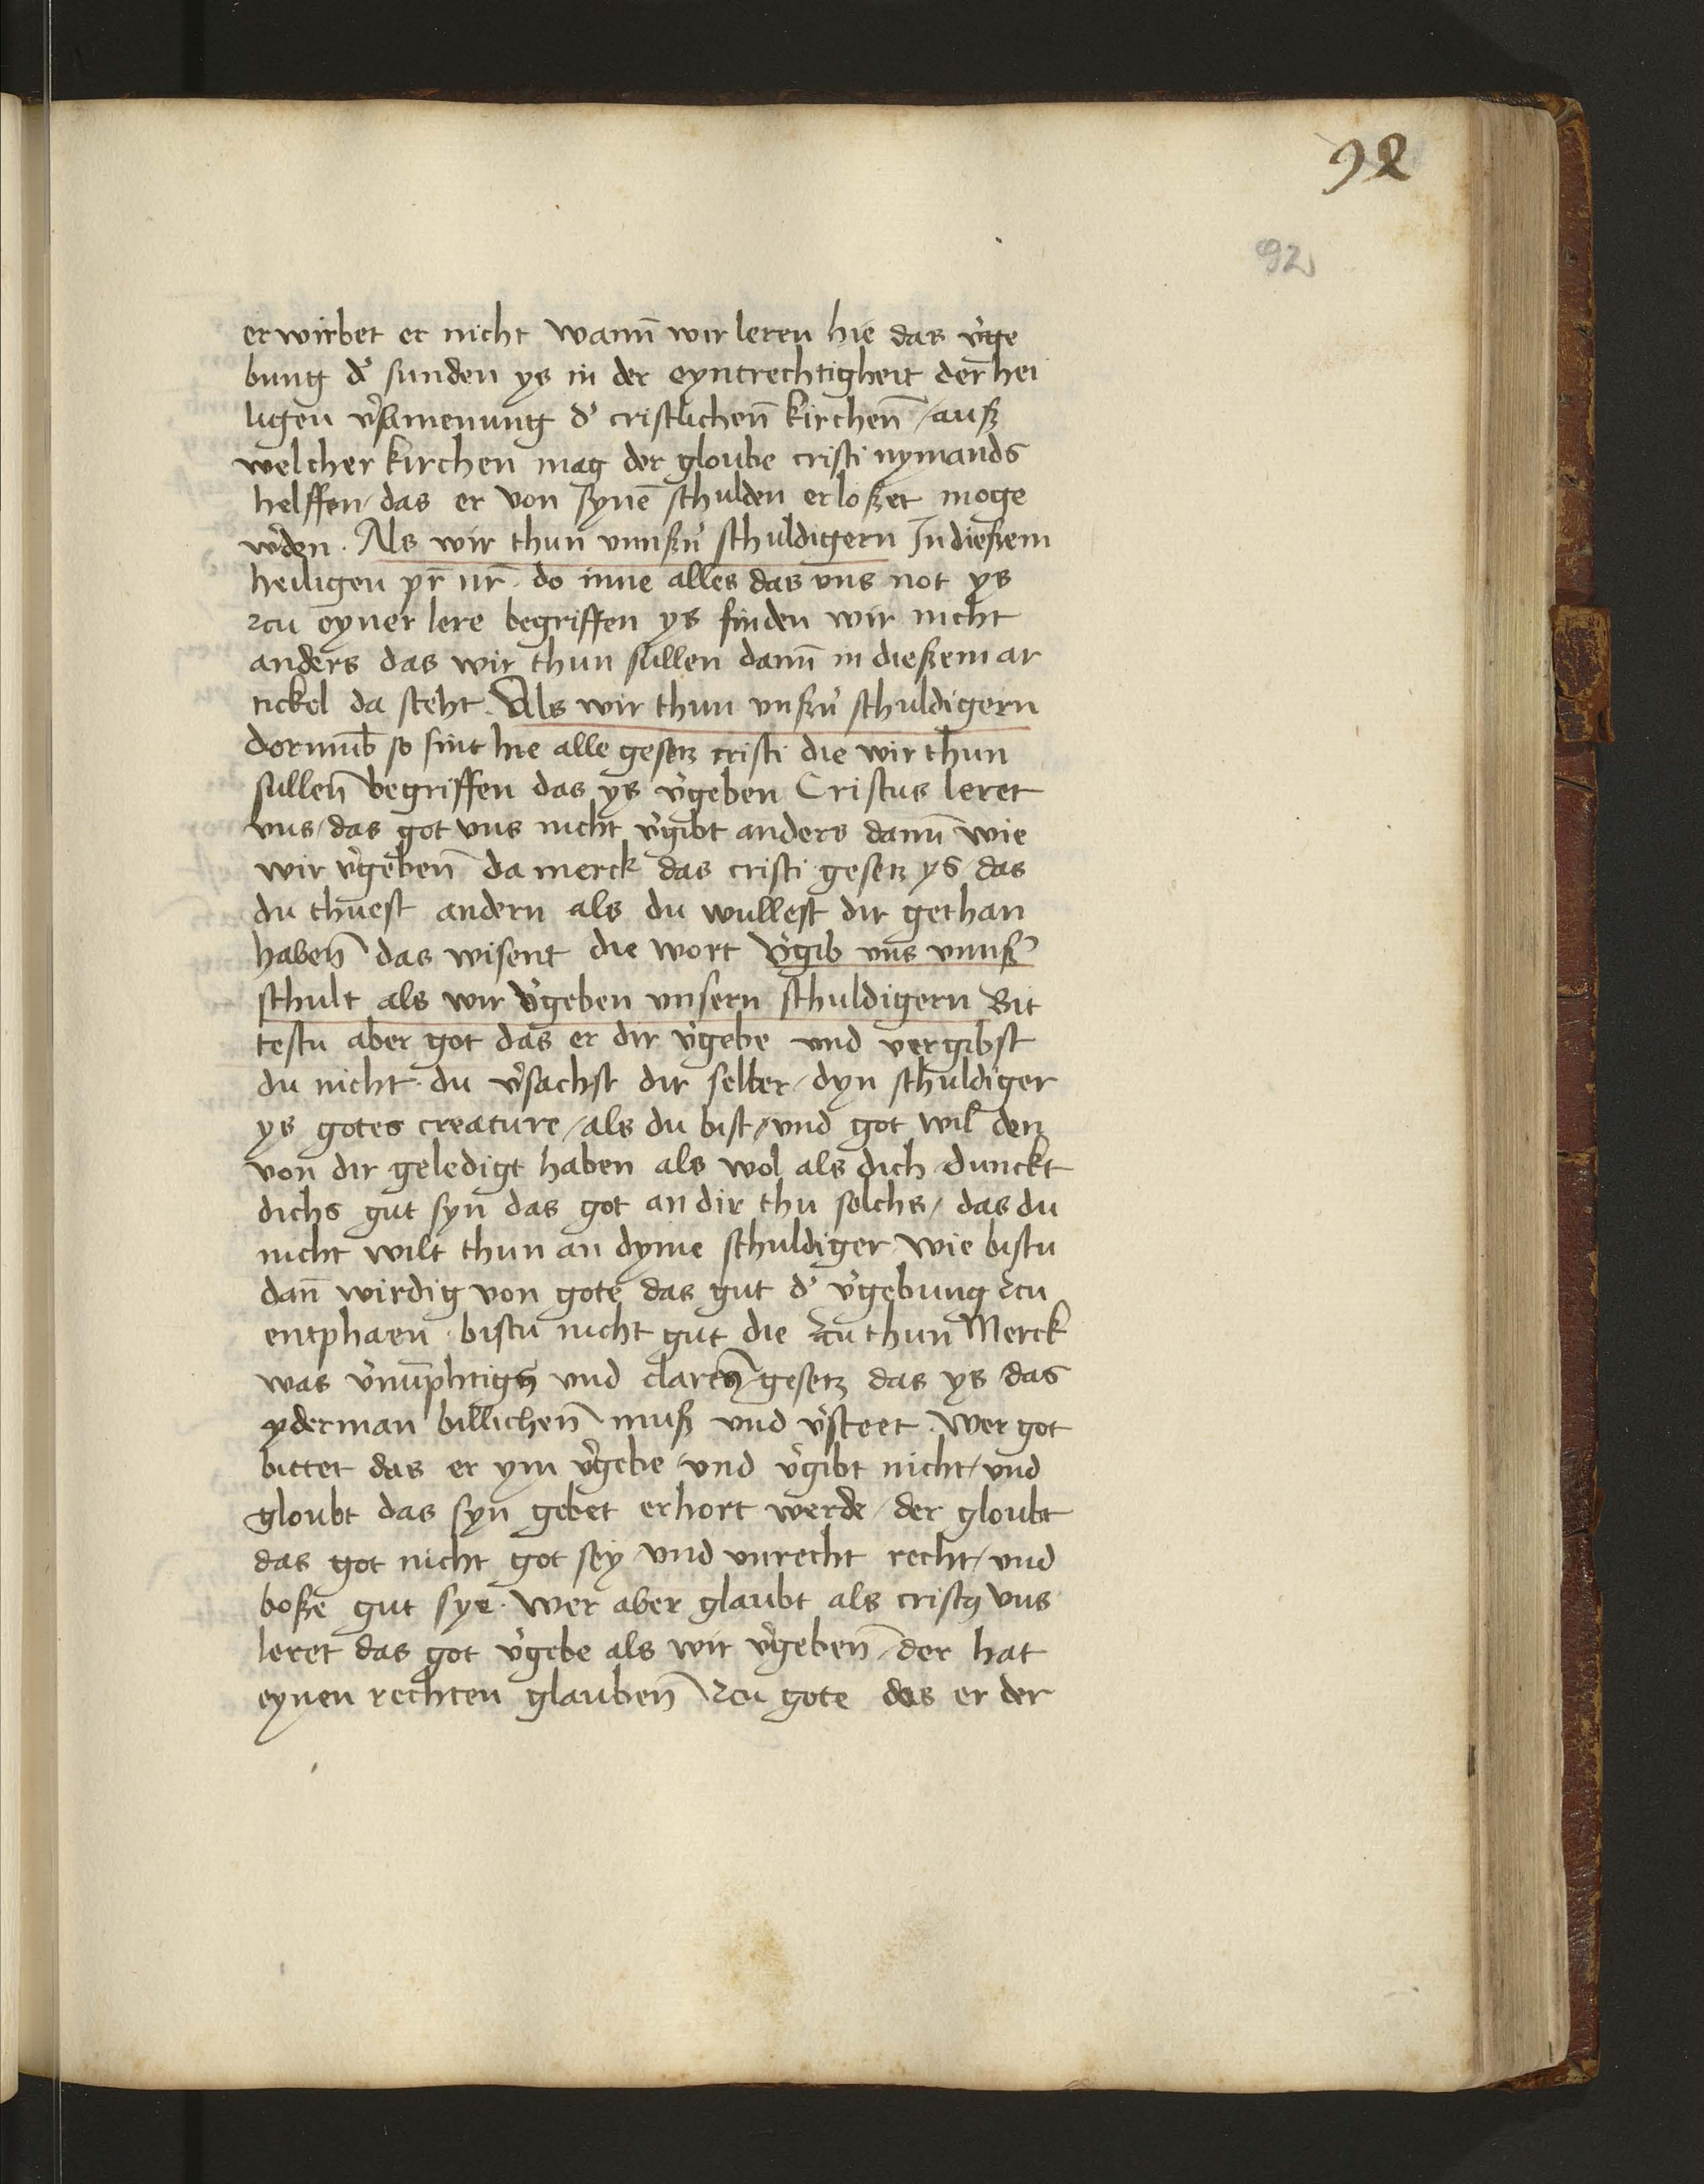 92
92
erwirbet er nicht wann̄ wir leren hie das v̓ge
bung d̓ sunden ys in der eyntrechtigheit der hei
ligen v̓samenung d̓ cristlichen̄ kirchen̄ / auß
welcher kirchen mag der gloube cristi nymands
helffen / das er von synē schulden erloßet moge
w̓den . Als wir thun vnnßn̓ schuldigern In dießem
heiligen pr̄ nr̄ . do inne alles das vns not ys
zcu eyner lere begriffen ys finden wir nicht
anders das wir thun sullen dann̄ in dießem ar
tickel da steht . Als wir thun vnßn̓ schuldigern
dorumb̄ so sint hie alle gesetz cristi die wir thun
sullen̄ begriffen das ys v̓geben Cristus leret
vns / das got vns nicht v̓gibt anders dann̄ wie
wir v̓geben̄ da merck das cristi gesetz ys / das
du thuest andern als du wullest dir gethan
haben̄ das wisent die wort v̓gib vns vnnß̓
schult als wir v̓geben vnsern schuldigern Bit
testu aber got das er dir v̓gebe und vergibst
du nicht . du v̓sachst dir selber / dyn schuldiger
ys gotes creature / als du bist / vnd got wil den
von dir geledigt haben als wol als dich / dunckt
dichs gut syn das got an dir thu solchs / das du
nicht wilt thun an dyme schuldiger / wie bistu
dan̄ wirdig von gote das gut d̓ v̓gebung zcu
entphaen . bistu nicht gut die zcu thun Merck
was v̓nu̅phtigs und clares gesetz das ys das
yderman billichen̄ muß vnd v̓steet . wer got
bittet das er ym v̓gebe / vnd v̓gibt nicht / vnd
gloubt das syn gebet erhort werde / der gloubt
das got nicht got sey / vnd vnrecht recht / vnd
boße gut sye . wer aber glaubt als cristꝯ vns
leret das got v̓gebe als wir v̓geben̄ / der hat
eynen rechten glauben̄ zcu gote das er der